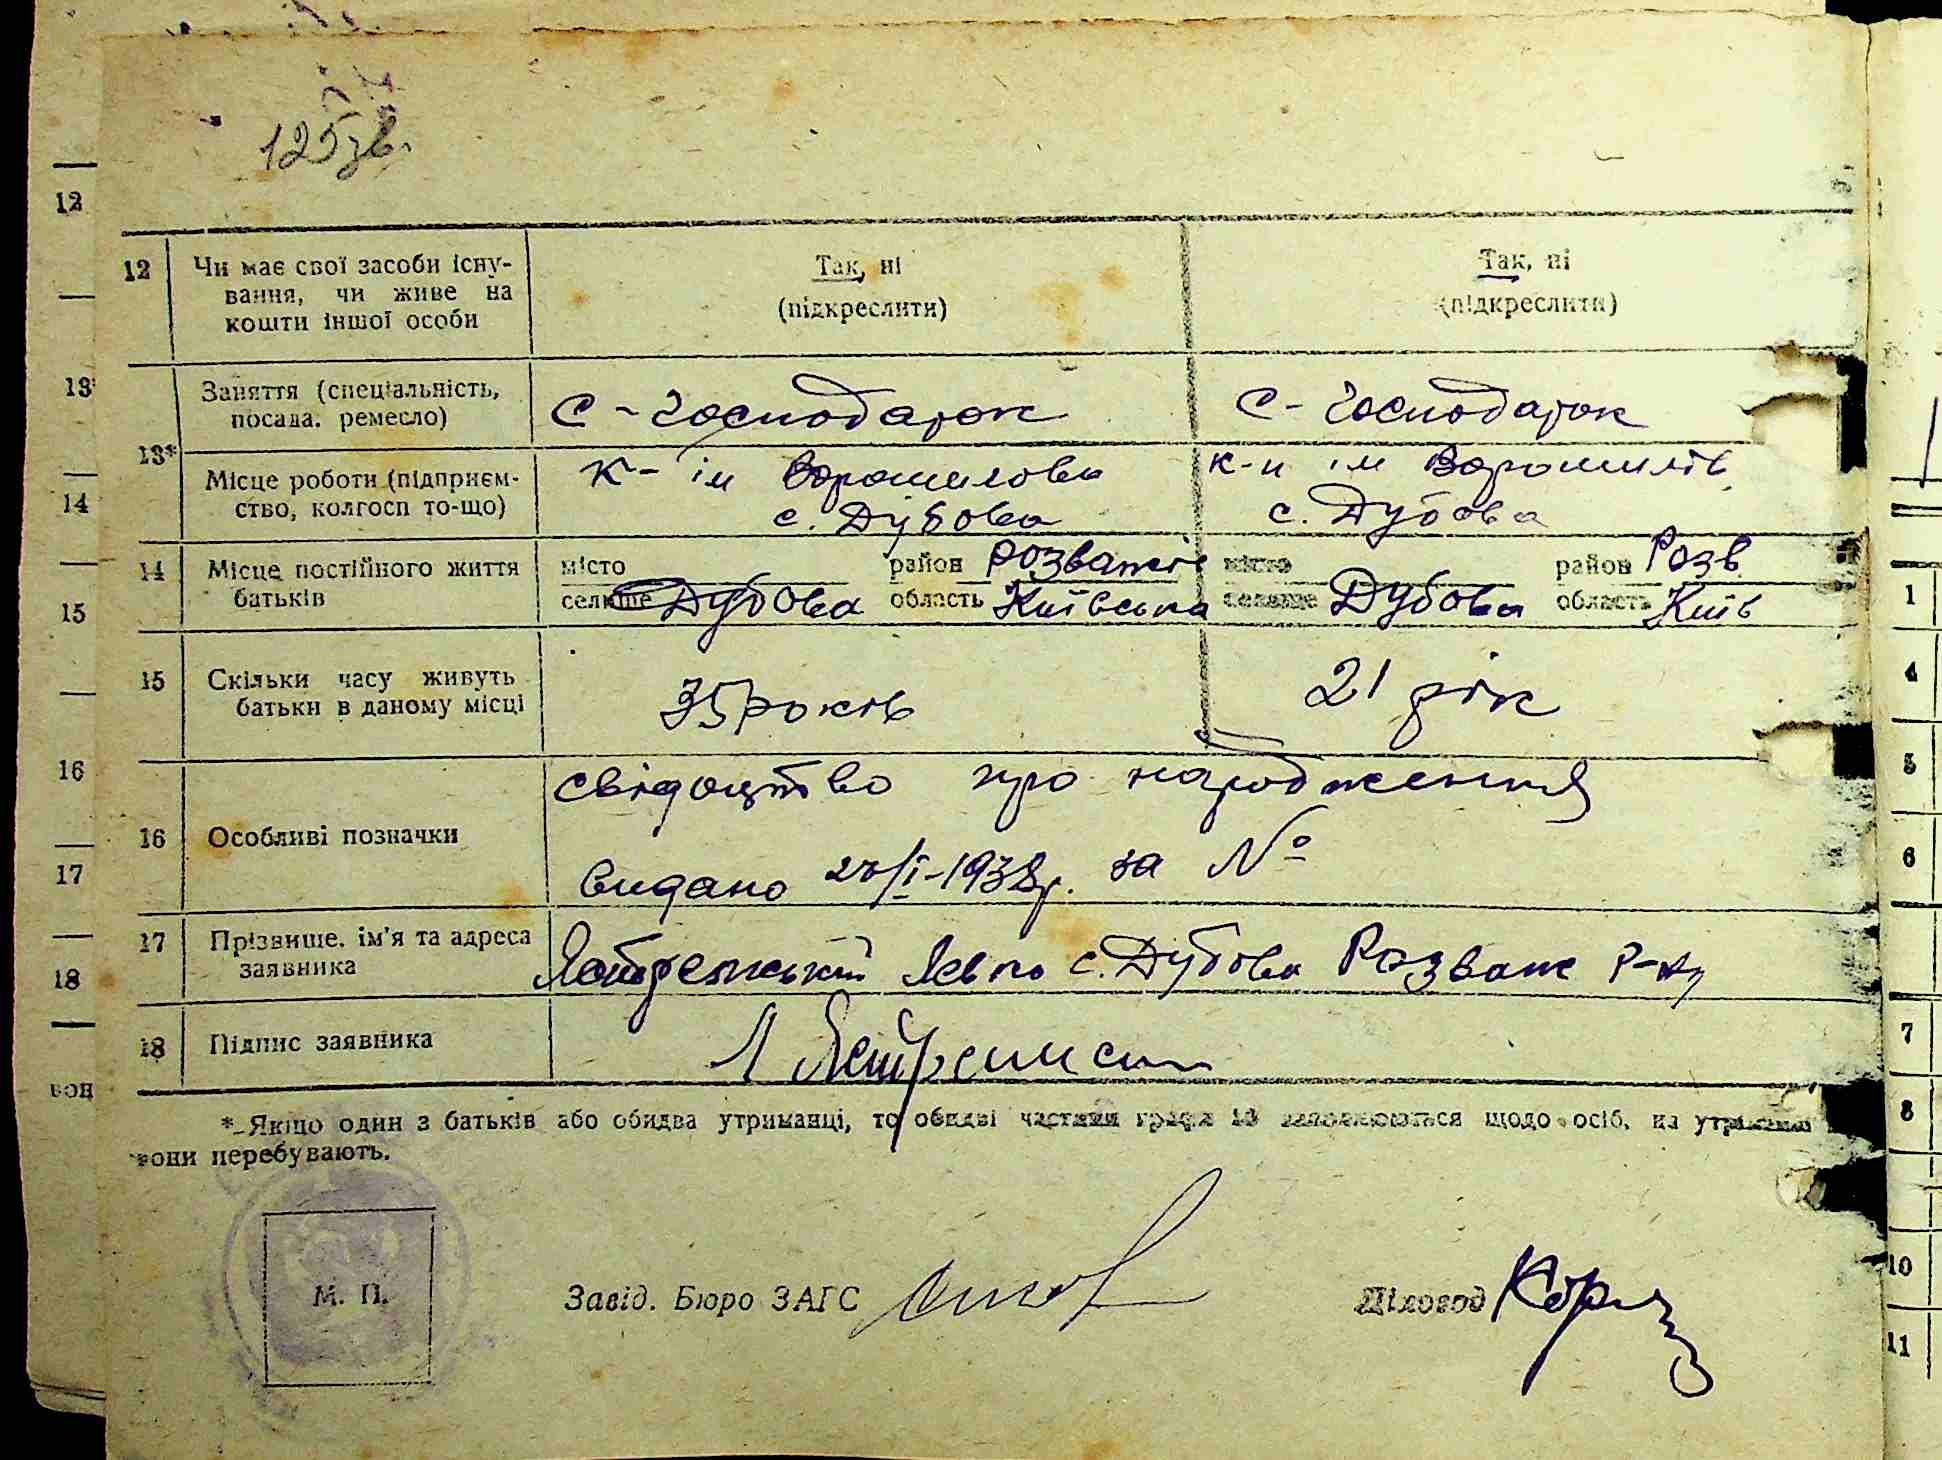 125зв.
12
12 Чи має свої засоби існу-
вання, чи живе на
кошти іншої особи
Так, ні
(підкреслити)
Так, ні
(підкреслити)
13
13*
Заняття (спеціальність,
посада. ремесло)
С-господарок
С-господарок
14
Місце роботи (підприєм-
ство, колгосп то-що)
К- ім Ворошилова
с. Дубова
к-п ім Ворошилів
с. Дубова
15
14 Місце постійного життя
батьків
місто район Розважів
селище Дубова область Київська
місто район Розв
селище Дубова область Київ
16
15 Скільки часу живуть
батьки в даному місці
35 років
21 рік
17
16 Особливі позначки
свідоцтво про народження
видано /I-1938р. за №
18
17 Прізвище. ім'я та адреса
заявника
с. Дубова Розваж р-ну
18 Підпис заявника
вон
*_Якщо один з батьків або обидва утриманці, то обидві частини графи 13 заповнюються щодо осіб, на утриманні
вони перебувають.
М. П.
Завід. Бюро ЗАГС
Діловод
1
4
5
6
7
8
10
11